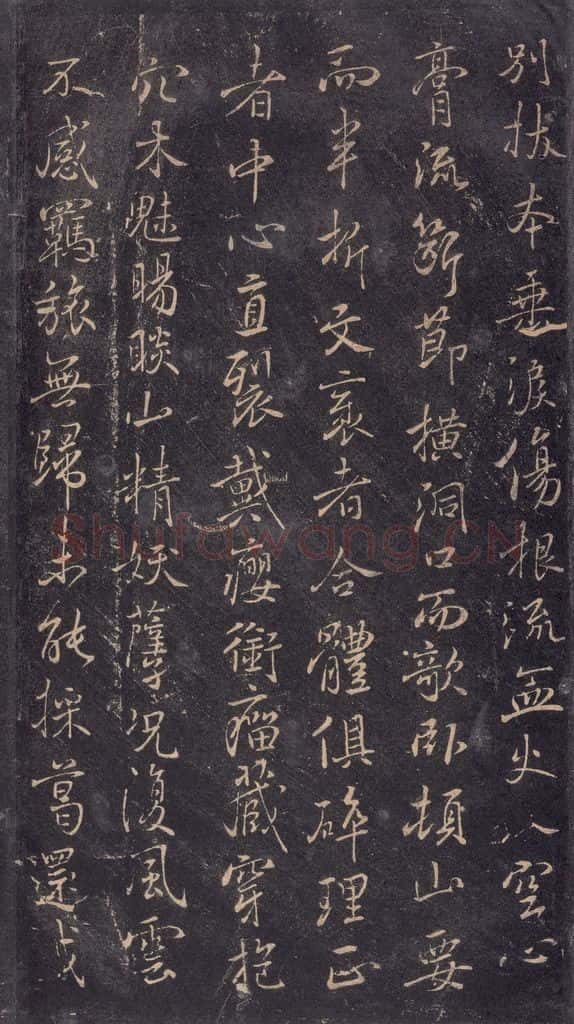 别拔本垂淚傷根流血火入空心
膏流節節橫洞口而欹卧頓山要
而半折文衺者合體俱碎理正
者中心直裂戴癭銜瘤藏穿抱
穴木魅睗睒山精妖孽況復風雲
不感羈旅無歸未能採葛還成
Shufawang.CN